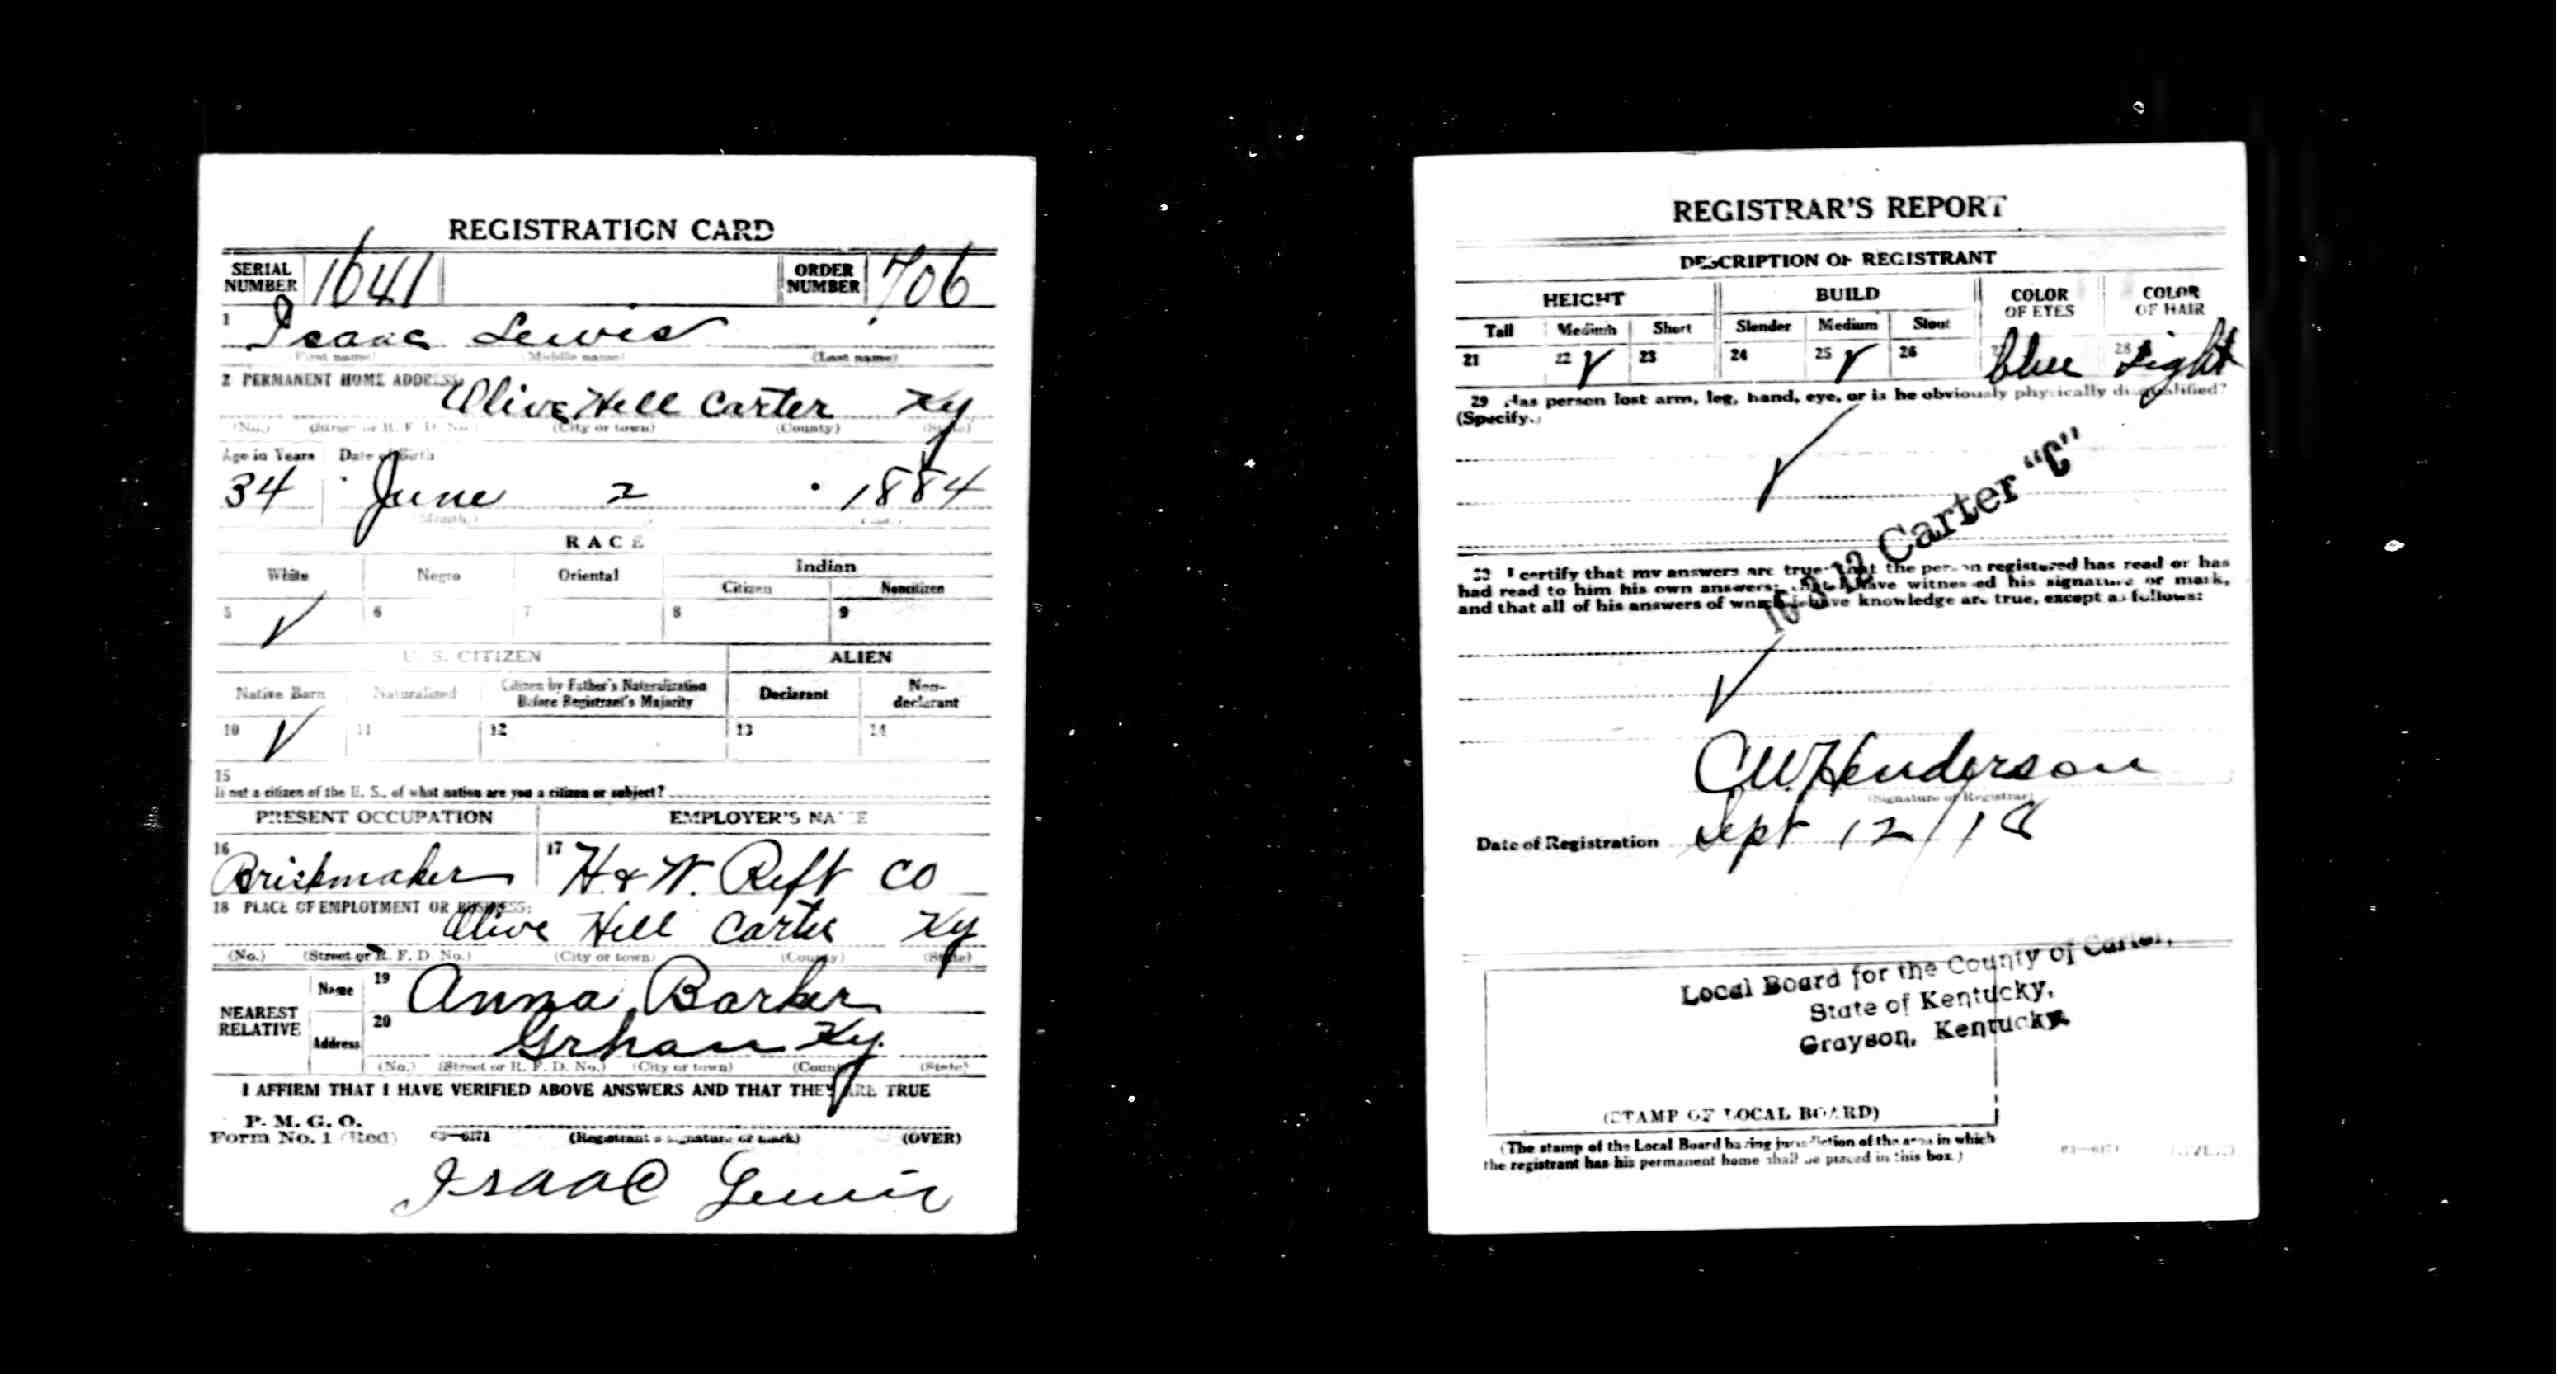 REGISTRATION CARD
SERIAL NUMBER 1641 ORDER NUMBER 706
1 Isaac Lewis
(First name) (Middle name) (Last name)
2 PERMANENT HOME ADDRESS:
Olive Hill Carter Ky
(No.) (Street or R. F. D. No.) (City or town) (County) (State)
Age in Years Date of Birth
34 June 2 1884
(Month.)
RACE
White Negro Oriental Indian
Citizen Noncitizen
5 ✓ 6 7 8 9
U. S. CITIZEN ALIEN
Native Born Naturalized Citizen by Father's Naturalization Before Registrant's Majority Declarant Non-declarant
10 ✓ 11 12 13 14
15
If not a citizen of the U. S., of what nation are you a citizen or subject?
PRESENT OCCUPATION EMPLOYER'S NAME
16 Brickmaker 17 H & W. Reft Co
18 PLACE OF EMPLOYMENT OR BUSINESS:
Olive Hill Carter Ky
(No.) (Street or R. F. D. No.) (City or town) (County) (State)
NEAREST RELATIVE Name 19 Anna Barker
Address 20 Grhan Ky.
(No.) (Street or R. F. D. No.) (City or town) (County) (State)
I AFFIRM THAT I HAVE VERIFIED ABOVE ANSWERS AND THAT THEY ARE TRUE
P. M. G. O.
Form No. 1 (Red) 03—6171 (Registrant's signature or mark) (OVER)
Isaac Lewis
REGISTRAR'S REPORT
DESCRIPTION OF REGISTRANT
HEIGHT BUILD COLOR OF EYES COLOR OF HAIR
Tall Medium Short Slender Medium Stout
21 22 ✓ 23 24 25 ✓ 26 blue 28 Light
29 Has person lost arm, leg, hand, eye, or is he obviously physically disqualified?
(Specify.)
✓
16-3-12 Carter "C"
30 I certify that my answers are true; that the person registered has read or has
had read to him his own answers; that I have witnessed his signature or mark,
and that all of his answers of which I have knowledge are true, except as follows:
✓
C.W. Henderson
(Signature of Registrar)
Date of Registration Sept 12/18
Local Board for the County of Carter,
State of Kentucky,
Grayson, Kentucky.
(STAMP OF LOCAL BOARD)
(The stamp of the Local Board having jurisdiction of the area in which
the registrant has his permanent home shall be placed in this box.)
03—6171 (OVER)